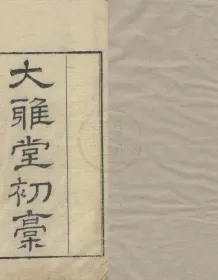 大雅堂初稾